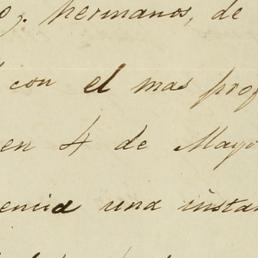 hermanos, de
con el mas prof
en 4 de Mayo
encia una instan